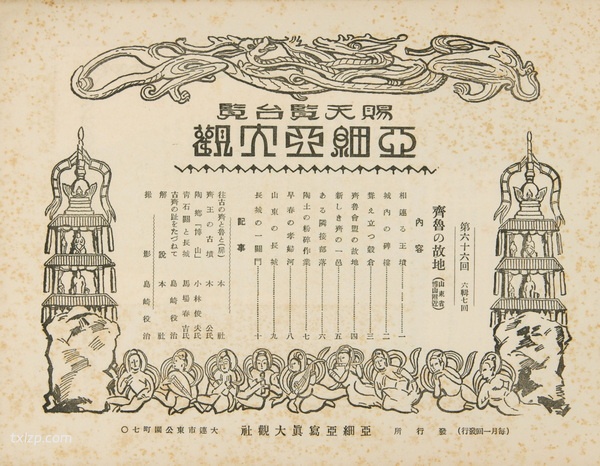 賜天覽台覽
亞細亞大觀
第六十六回 六輯七回
齊魯の故地 (山東省博山附近)
內容
相連る王墳 一
城內の碑樓 二
聳え立つ穀倉 三
齊魯會盟の故地 四
新しき齊の一邑 五
ある隣接部落 六
陶土の粉碎作業 七
早春の孝婦河 八
山東の長城 九
長城の一關門 十
記事
往古の齊と魯と(房) 本社
齊王の古墳 木公氏
陶鄕「博山」 小林俊夫氏
靑石關と長城 馬場春吉氏
古齊の趾をたづねて 島崎役治
解說 本社
撮影 島崎役治
(每月一回發行)
發行所 亞細亞寫眞大觀社 大連市東公園町七〇
txlzp.com